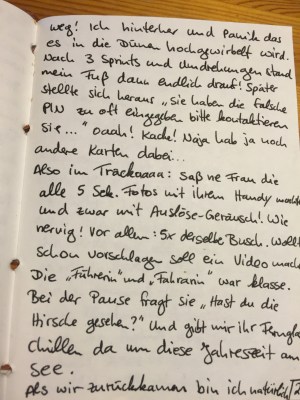 weg! Ich hinterher und Panik das
es in die Dünen hochgewirbelt wird.
Nach 3 Sprints und Umdrehungen stand
mein Fuß dann endlich drauf! Später
stellte sich heraus „sie haben die falsche
PIN zu oft eingegeben bitte kontaktieren
sie..." Oaah! Kacke! Naja hab ja noch
andere Karten dabei...
Also im Trackaaaa: Saß ne Frau die
alle 5 Sek. Fotos mit ihrem Handy machte
und zwar mit Auslöse-Geräusch! Wie
nervig! Vor allem: 5x derselbe Busch. Wollt
schon vorschlagen soll ein Video mach
Die „Führerin" und „Fahrärin" war klasse.
Bei der Pause fragt sie „Hast du die
Hirsche gesehen?" Und gibt mir ihr Fernglas
chillen da um diese Jahreszeit am
See.
Als wir zurückkamen bin ich natürlich